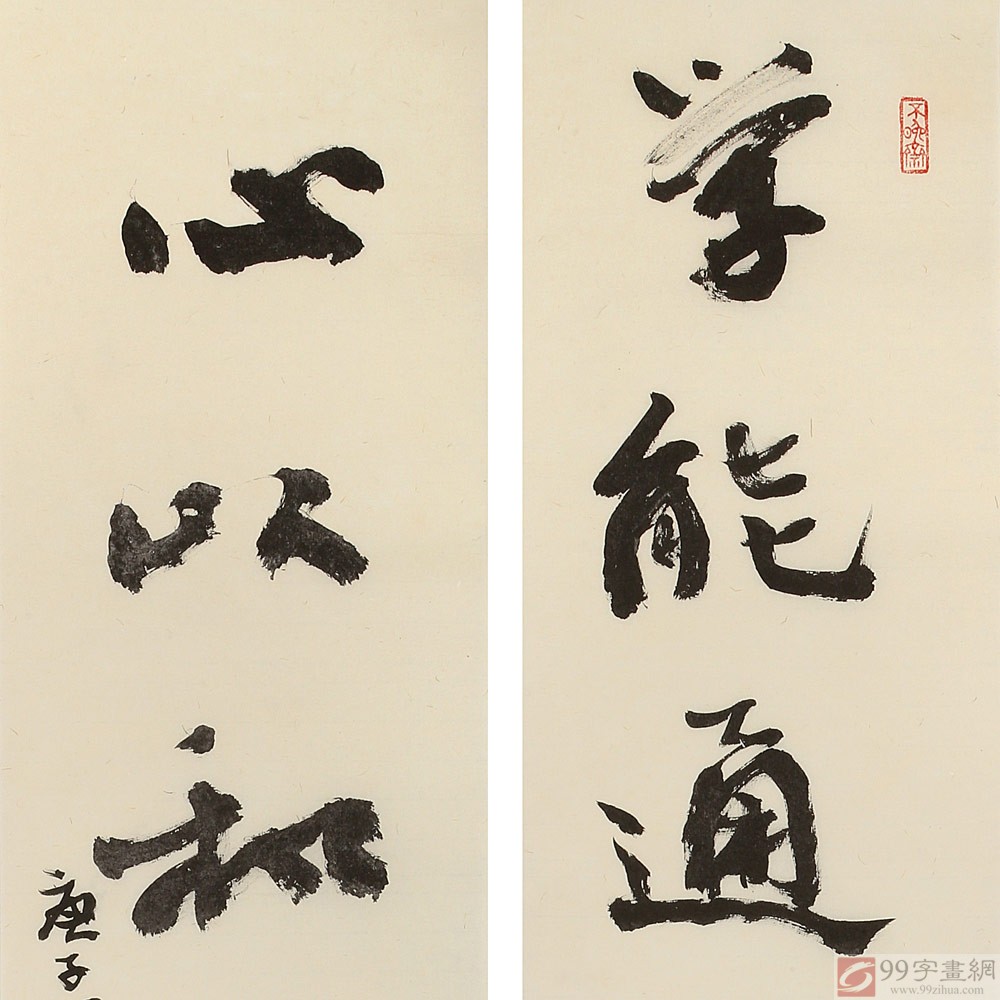 学能通
心以和
庚子
99字畫網
www.99zihua.com